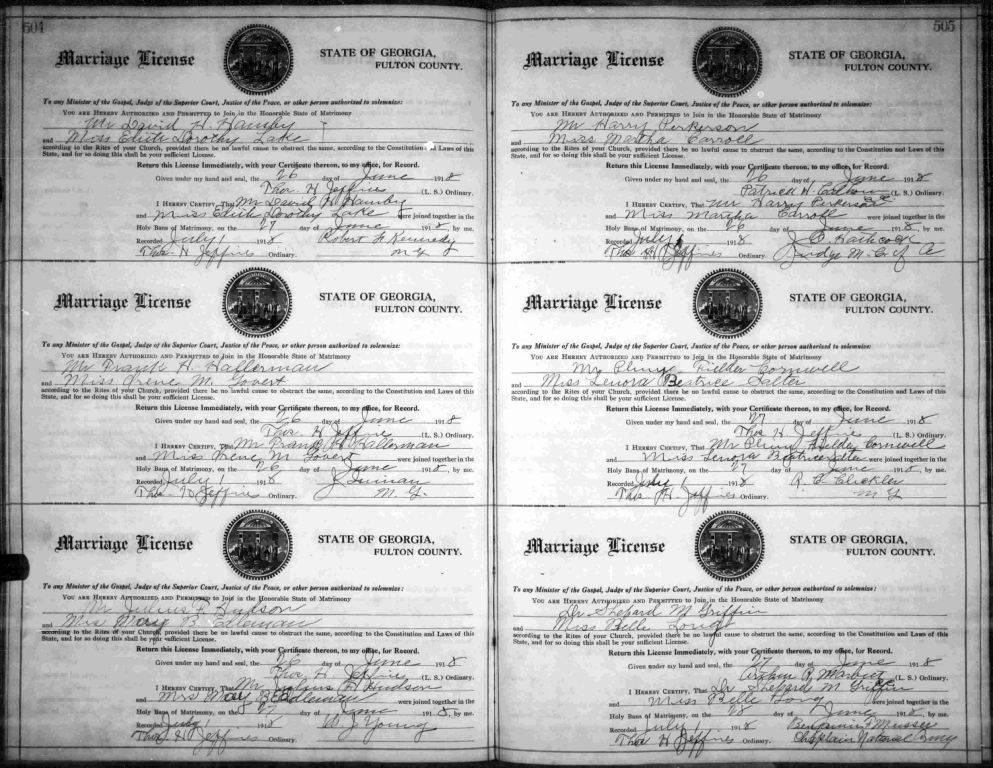 504
Marriage License
STATE OF GEORGIA,
FULTON COUNTY.
To any Minister of the Gospel, Judge of the Superior Court, Justice of the Peace, or other person authorized to solemnize:
YOU ARE HEREBY AUTHORIZED AND PERMITTED to Join in the Honorable State of Matrimony
Mr David H. Hamby
and Miss Edith Dorothy Lake
according to the Rites of your Church, provided there be no lawful cause to obstruct the same, according to the Constitution and Laws of this
State, and for so doing this shall be your sufficient License.
Return this License Immediately, with your Certificate thereon, to my office, for Record.
Given under my hand and seal, the 26 day of June 1918
Thos H Jeffries (L. S.) Ordinary.
I HEREBY CERTIFY, That Mr David H Hamby
and Miss Edith Dorothy Lake were joined together in the
Holy Bans of Matrimony, on the 27 day of June 1918, by me.
Recorded July 1 1918 Robert F Kennedy
Thos H Jeffries Ordinary. M G
Marriage License
STATE OF GEORGIA,
FULTON COUNTY.
To any Minister of the Gospel, Judge of the Superior Court, Justice of the Peace, or other person authorized to solemnize:
YOU ARE HEREBY AUTHORIZED AND PERMITTED to Join in the Honorable State of Matrimony
Mr Frank H. Hallerman
and Miss Irene M. Govert
according to the Rites of your Church, provided there be no lawful cause to obstruct the same, according to the Constitution and Laws of this
State, and for so doing this shall be your sufficient License.
Return this License Immediately, with your Certificate thereon, to my office, for Record.
Given under my hand and seal, the 26 day of June 1918
Thos H Jeffries (L. S.) Ordinary.
I HEREBY CERTIFY, That Mr Frank H Hallerman
and Miss Irene M Govert were joined together in the
Holy Bans of Matrimony, on the 26 day of June 1918, by me.
Recorded July 1 1918 J
Thos H Jeffries Ordinary. M. G.
Marriage License
STATE OF GEORGIA,
FULTON COUNTY.
To any Minister of the Gospel, Judge of the Superior Court, Justice of the Peace, or other person authorized to solemnize:
YOU ARE HEREBY AUTHORIZED AND PERMITTED to Join in the Honorable State of Matrimony
Mr Julius H Hudson
and Mrs Mary B
according to the Rites of your Church, provided there be no lawful cause to obstruct the same, according to the Constitution and Laws of this
State, and for so doing this shall be your sufficient License.
Return this License Immediately, with your Certificate thereon, to my office, for Record.
Given under my hand and seal, the 26 day of June 1918
Thos H Jeffries (L. S.) Ordinary.
I HEREBY CERTIFY, That Mr Julius H Hudson
and Mrs Mary B were joined together in the
Holy Bans of Matrimony, on the 27 day of June 1918, by me.
Recorded July 1 1918 W J Young
Thos H Jeffries Ordinary.
505
Marriage License
STATE OF GEORGIA,
FULTON COUNTY.
To any Minister of the Gospel, Judge of the Superior Court, Justice of the Peace, or other person authorized to solemnize:
YOU ARE HEREBY AUTHORIZED AND PERMITTED to Join in the Honorable State of Matrimony
Mr Harry Perkerson
and Miss Martha Carroll
according to the Rites of your Church, provided there be no lawful cause to obstruct the same, according to the Constitution and Laws of this
State, and for so doing this shall be your sufficient License.
Return this License Immediately, with your Certificate thereon, to my office, for Record.
Given under my hand and seal, the 26 day of June 1918
Patrick H. Calhoun (L. S.) Ordinary.
I HEREBY CERTIFY, That Mr Harry Perkerson
and Miss Martha Carroll were joined together in the
Holy Bans of Matrimony, on the 26 day of June 1918, by me.
Recorded July 1 1918 J C Hathcock
Thos H Jeffries Ordinary. Judge M. C. of A
Marriage License
STATE OF GEORGIA,
FULTON COUNTY.
To any Minister of the Gospel, Judge of the Superior Court, Justice of the Peace, or other person authorized to solemnize:
YOU ARE HEREBY AUTHORIZED AND PERMITTED to Join in the Honorable State of Matrimony
Mr Pliny Fielder Cornwell
and Miss Lenora Beatrice Salter
according to the Rites of your Church, provided there be no lawful cause to obstruct the same, according to the Constitution and Laws of this
State, and for so doing this shall be your sufficient License.
Return this License Immediately, with your Certificate thereon, to my office, for Record.
Given under my hand and seal, the 27 day of June 1918
Thos H Jeffries (L. S.) Ordinary.
I HEREBY CERTIFY, That Mr Pliny Fielder Cornwell
and Miss Lenora Beatrice Salter were joined together in the
Holy Bans of Matrimony, on the 27 day of June 1918, by me.
Recorded July 1 1918 R. C.
Thos H Jeffries Ordinary. M G
Marriage License
STATE OF GEORGIA,
FULTON COUNTY.
To any Minister of the Gospel, Judge of the Superior Court, Justice of the Peace, or other person authorized to solemnize:
YOU ARE HEREBY AUTHORIZED AND PERMITTED to Join in the Honorable State of Matrimony
Dr Shepard M Griffin
and Miss Belle Long
according to the Rites of your Church, provided there be no lawful cause to obstruct the same, according to the Constitution and Laws of this
State, and for so doing this shall be your sufficient License.
Return this License Immediately, with your Certificate thereon, to my office, for Record.
Given under my hand and seal, the 27 day of June 1918
(L. S.) Ordinary.
I HEREBY CERTIFY, That Dr Shepard M Griffin
and Miss Belle Long were joined together in the
Holy Bans of Matrimony, on the 28 day of June 1918, by me.
Recorded July 1 1918 Benjamin F Musser
Thos H Jeffries Ordinary. Chaplain National Army